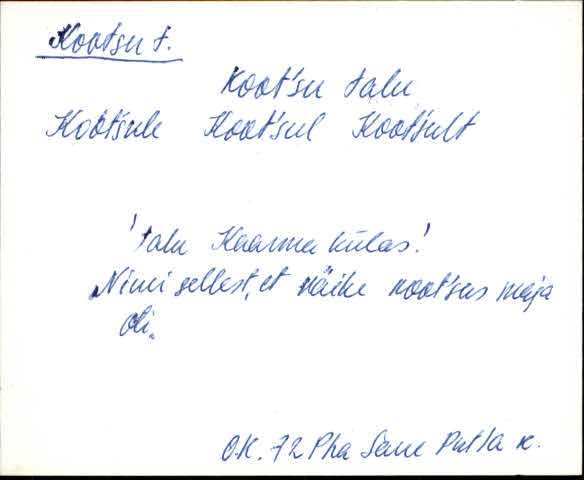 Kootsu t.
Koot'su talu
Koot'sule Koot'sul Koot'sult
'talu Kaarma külas'
Nimi sellest, et väike koot'sus maja
oli.
O.K. 72 Pha Putla k.